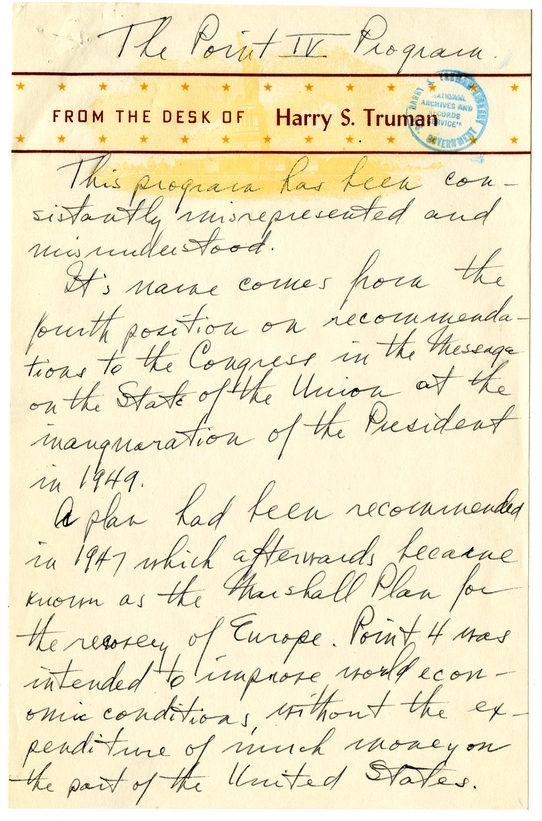 The Point IV Program.
FROM THE DESK OF Harry S. Truman
HARRY S. TRUMAN LIBRARY
"NATIONAL
ARCHIVES AND
RECORDS
SERVICE"
U.S. GOVERNMENT
This program has been con-
sistantly misrepresented and
misunderstood.
It's name comes from the
fourth position on recommenda-
tions to the Congress in the Message
on the State of the Union at the
inauguration of the President
in 1949.
A plan had been recommended
in 1947 which afterwards became
known as the Marshall Plan for
the recovery of Europe. Point 4 was
intended to improve world econ-
omic conditions, without the ex-
penditure of much money on
the part of the United States.